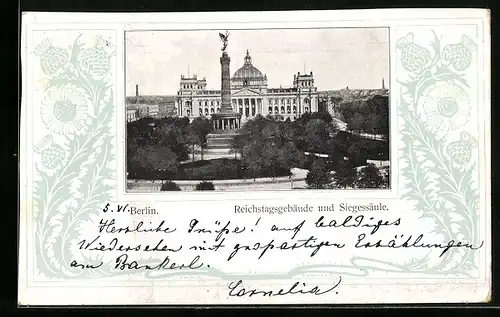 Berlin. Reichstagsgebäude und Siegessäule.
5. VI.
Herzliche Grüße! auf baldiges
Wiedersehen mit großartigen Erzählungen
am Bankerl.
Cornelia.